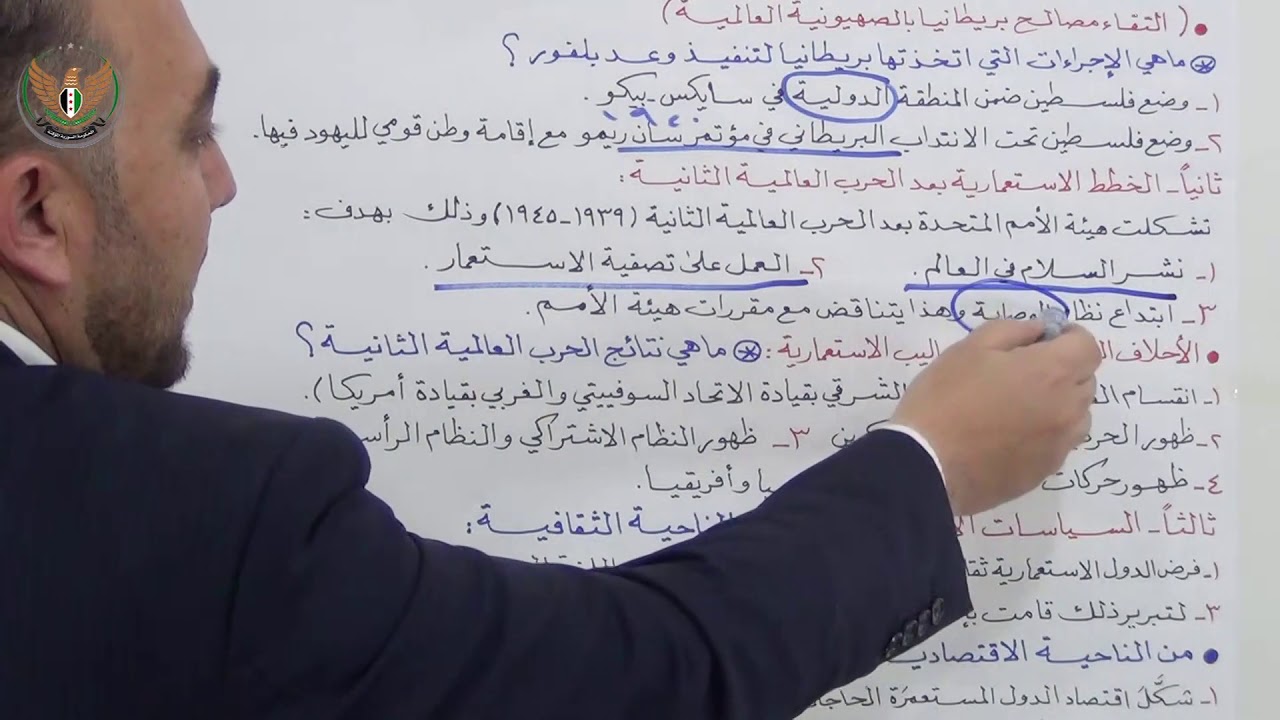 • ( التقاء مصالح بريطانيا بالصهيونية العالمية)
* ماهي الإجراءات التي اتخذتها بريطانيا لتنفيذ وعد بلفور ؟
١- وضع فلسطين ضمن المنطقة الدولية في سايكس-بيكو .
٢- وضع فلسطين تحت الانتداب البريطاني في مؤتمر سان ريمو مع إقامة وطن قومي لليهود فيها.
ثانياً- الخطط الاستعمارية بعد الحرب العالمية الثانية :
تشكلت هيئة الأمم المتحدة بعد الحرب العالمية الثانية (١٩٣٩-١٩٤٥) وذلك بهدف :
١- نشر السلام في العالم . ٢- العمل على تصفية الاستعمار .
٣- ابتداع نظام الوصاية وهذا يتناقض مع مقررات هيئة الأمم .
• الأحلاف الاستعمارية : * ماهي نتائج الحرب العالمية الثانية ؟
١- انقسام الشرقي بقيادة الاتحاد السوفييتي والغربي بقيادة أمريكا ).
٢- ظهور ٣- ظهور النظام الاشتراكي والنظام
٤- ظهور حركات وأفريقيا .
ثالثاً- السياسات الناحية الثقافية :
١- فرض الدول الاستعمارية
٣- لتبرير ذلك قامت
• من الناحية
١- شكَّلَ اقتصاد الدول المستعمَرة